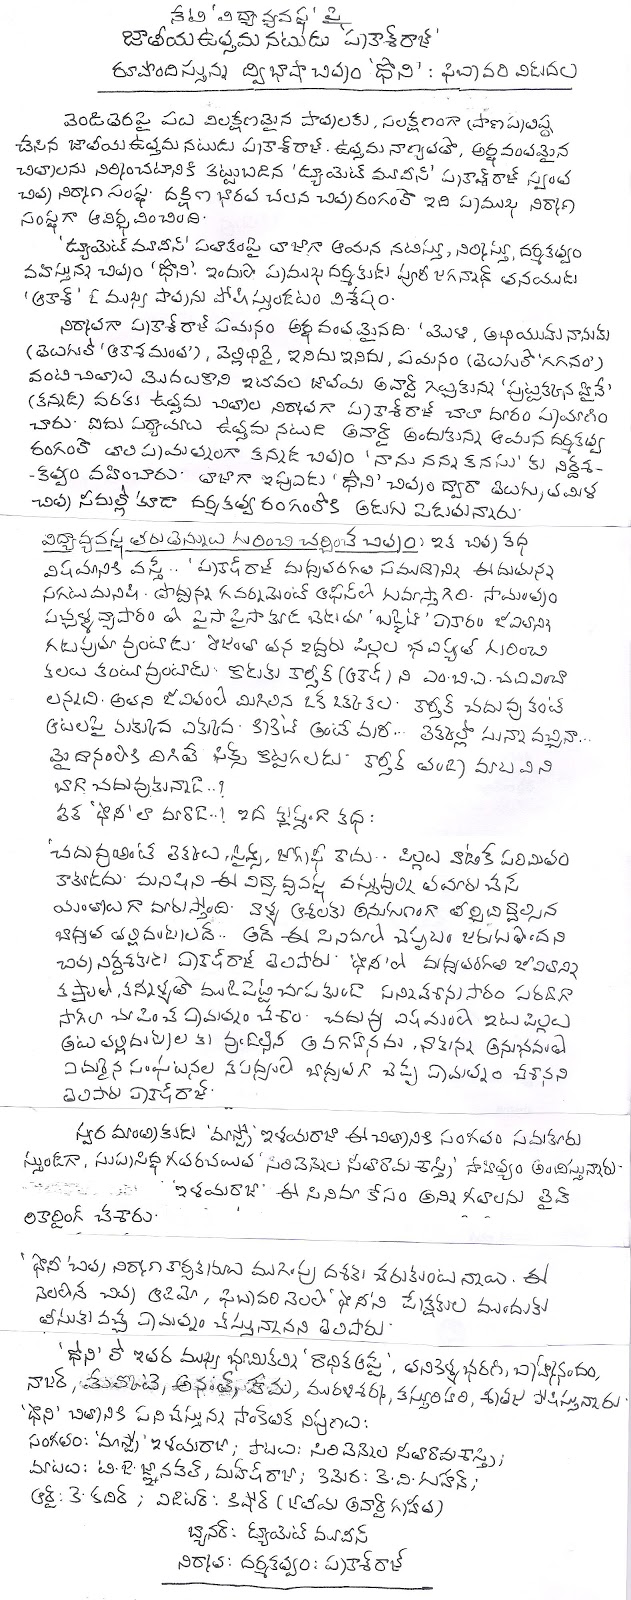 నేటి 'విద్యావ్యవస్థ' పై
జాతీయ ఉత్తమ నటుడు 'ప్రకాశ్‌రాజ్'
రూపొందిస్తున్న ద్విభాషా చిత్రం 'ధోని' : ఫిబ్రవరి విడుదల
వెండితెరపై పలు విలక్షణమైన పాత్రలకు, సలక్షణంగా ప్రాణప్రతిష్ఠ
చేసిన జాతీయ ఉత్తమ నటుడు ప్రకాశ్‌రాజ్. ఉత్తమ నాణ్యతతో, అర్థవంతమైన
చిత్రాలను నిర్మించటానికి కట్టుబడిన 'డ్యూయెట్ మూవీస్' ప్రకాష్‌రాజ్ స్వంత
చిత్ర నిర్మాణ సంస్థ. దక్షిణ భారత చలన చిత్రరంగంలో ఇది ప్రముఖ నిర్మాణ
సంస్థగా ఆవిర్భవించింది.
'డ్యూయెట్ మూవీస్' పతాకంపై తాజాగా ఆయన నటిస్తూ, నిర్మిస్తూ, దర్శకత్వం
వహిస్తున్న చిత్రం 'ధోని'. ఇందులో ప్రముఖ దర్శకుడు పూరీ జగన్నాధ్ తనయుడు
'ఆకాశ్' ఓ ముఖ్య పాత్రను పోషిస్తుండటం విశేషం.
నిర్మాతగా ప్రకాశ్‌రాజ్ పయనం అర్థవంతమైనది. 'మొళి, అభియుమ్ నానుమ్
(తెలుగులో 'ఆకాశమంత'), వెల్లిథిరై, ఇనిదు ఇనిదు, పయనం (తెలుగులో 'గగనం')
వంటి చిత్రాలు మొదలుకొని ఇటీవల జాతీయ అవార్డ్ గెల్చుకున్న 'పుట్టక్కన హైవే'
(కన్నడ) వరకు ఉత్తమ చిత్రాల నిర్మాతగా ప్రకాశ్‌రాజ్ చాలా దూరం ప్రయాణిం
చారు. ఐదు పర్యాయాలు ఉత్తమ నటుడి అవార్డ్ అందుకున్న ఆయన దర్శకత్వ
రంగంలో తొలి ప్రయత్నంగా కన్నడ చిత్రం 'నాను నన్న కనసు' కు నిర్దేశ-
-కత్వం వహించారు. తాజాగా ఇప్పుడు 'ధోని' చిత్రం ద్వారా తెలుగు, తమిళ
చిత్ర సీమల్లో కూడా దర్శకత్వ రంగంలోకి అడుగు పెడుతున్నారు.
విద్యావ్యవస్థ తీరుతెన్నుల గురించి చర్చించే చిత్రం: ఇక చిత్ర కథ
విషయానికి వస్తే.. 'ప్రకాష్‌రాజ్ మధ్యతరగతి సముద్రాన్ని ఈదుతున్న
సగటుమనిషి. పొద్దున్న గవర్నమెంట్ ఆఫీస్‌లో గుమాస్తాగిరి. సాయంత్రం
పచ్చళ్ళ వ్యాపారం తో పైసా పైసా కూడ బెడుతూ 'బడ్జెట్' జీవితాన్ని
గడుపుతూ వుంటాడు. రోజంతా తన ఇద్దరు పిల్లల భవిష్యత్ గురించి
కలలు కంటూ వుంటాడు. కొడుకు కార్తీక్ (ఆకాష్) ని ఎం.బి.ఎ. చదివించా
లన్నది. అతని జీవితంలో మిగిలిన ఒకే ఒక్క కల. కార్తీక్ చదువు కంటే
ఆటలపై మక్కువ ఎక్కువ. క్రికెట్ అంటే మరీ... లెక్కల్లో సున్నా వచ్చినా...
మైదానంలోకి దిగితే ఫిక్స్ కొట్టగలడు. కార్తీక్ తండ్రి మాట విని
బాగా చదువుకున్నాడా..?
లేక 'ధోని'లా మారాడా..! ఇదే క్లుప్తంగా కథ:
'చదువు అంటే లెక్కలు, సైన్స్, జాగ్రఫీ కాదు.. పిల్లలు వాటికే పరిమితం
కాకూడదు. మనిషిని ఈ విద్యావ్యవస్థ వస్తువుల్ని తయారు చేసే
యంత్రాలుగా మారుస్తోంది. వాళ్ళ ఆశలకు అనుగుణంగా తీర్చిదిద్దాల్సిన
బాధ్యత తల్లిదండ్రులదే.. అదే ఈ సినిమాలో చెప్పటం జరుగుతోందని
చిత్ర నిర్దేశకుడు ప్రకాష్‌రాజ్ తెలిపారు. 'ధోని'లో మధ్యతరగతి జీవితాన్ని
కష్టాలతో, కన్నీళ్ళతో ముడిపెట్టి చూపకుండా సన్నివేశానుసారం సరదాగా
సాగేలా చూపించే ప్రయత్నం చేశాం. చదువు విషయంలో ఇటు పిల్లలు
అటు తల్లిదండ్రుల కు వుండాల్సిన అవగాహనను, నాకున్న అనుభవంతో
ఎదురైన సంఘటనల నేపధ్యంలో బాధ్యతగా చెప్పే ప్రయత్నం చేశానని
తెలిపారు ప్రకాష్‌రాజ్.
స్వర మాంత్రికుడు 'మాస్ట్రో' ఇళయరాజా ఈ చిత్రానికి సంగీతం సమకూరు
స్తుండగా, సుప్రసిద్ధ గీతరచయిత 'సిరివెన్నెల సీతారామశాస్త్రి' సాహిత్యం అందిస్తున్నారు.
'ఇళయరాజా' ఈ సినిమా కోసం అన్ని గీతాలను లైవ్
రికార్డింగ్ చేశారు.
'ధోని' చిత్ర నిర్మాణ కార్యక్రమాలు ముగింపు దశకు చేరుకుంటున్నాయి. ఈ
నెలలోనే చిత్ర ఆడియో, ఫిబ్రవరి నెలలో 'ధోని'ని ప్రేక్షకుల ముందుకు
తీసుకు వచ్చే ప్రయత్నం చేస్తున్నానని తెలిపారు.
'ధోని' లో ఇతర ముఖ్య భూమికల్ని 'రాధిక ఆప్టే', తనికెళ్ళ భరణి, బ్రహ్మానందం,
నాజర్, అనంత్, హేమ, మురళీశర్మ, పోషిస్తున్నారు.
'ధోని' చిత్రానికి పనిచేస్తున్న సాంకేతిక నిపుణులు:
సంగీతం: 'మాస్ట్రో' ఇళయరాజా; పాటలు: సిరివెన్నెల సీతారామశాస్త్రి;
మాటలు: టి.జె. జ్ఞానవేల్, మహేష్‌రాజా; కెమెరా: కె.వి.గుహన్;
ఆర్ట్: కె. కదిర్; ఎడిటర్: కిషోర్ (జాతీయ అవార్డ్ గ్రహీత)
బ్యానర్: డ్యూయెట్ మూవీస్
నిర్మాత: దర్శకత్వం: ప్రకాశ్‌రాజ్